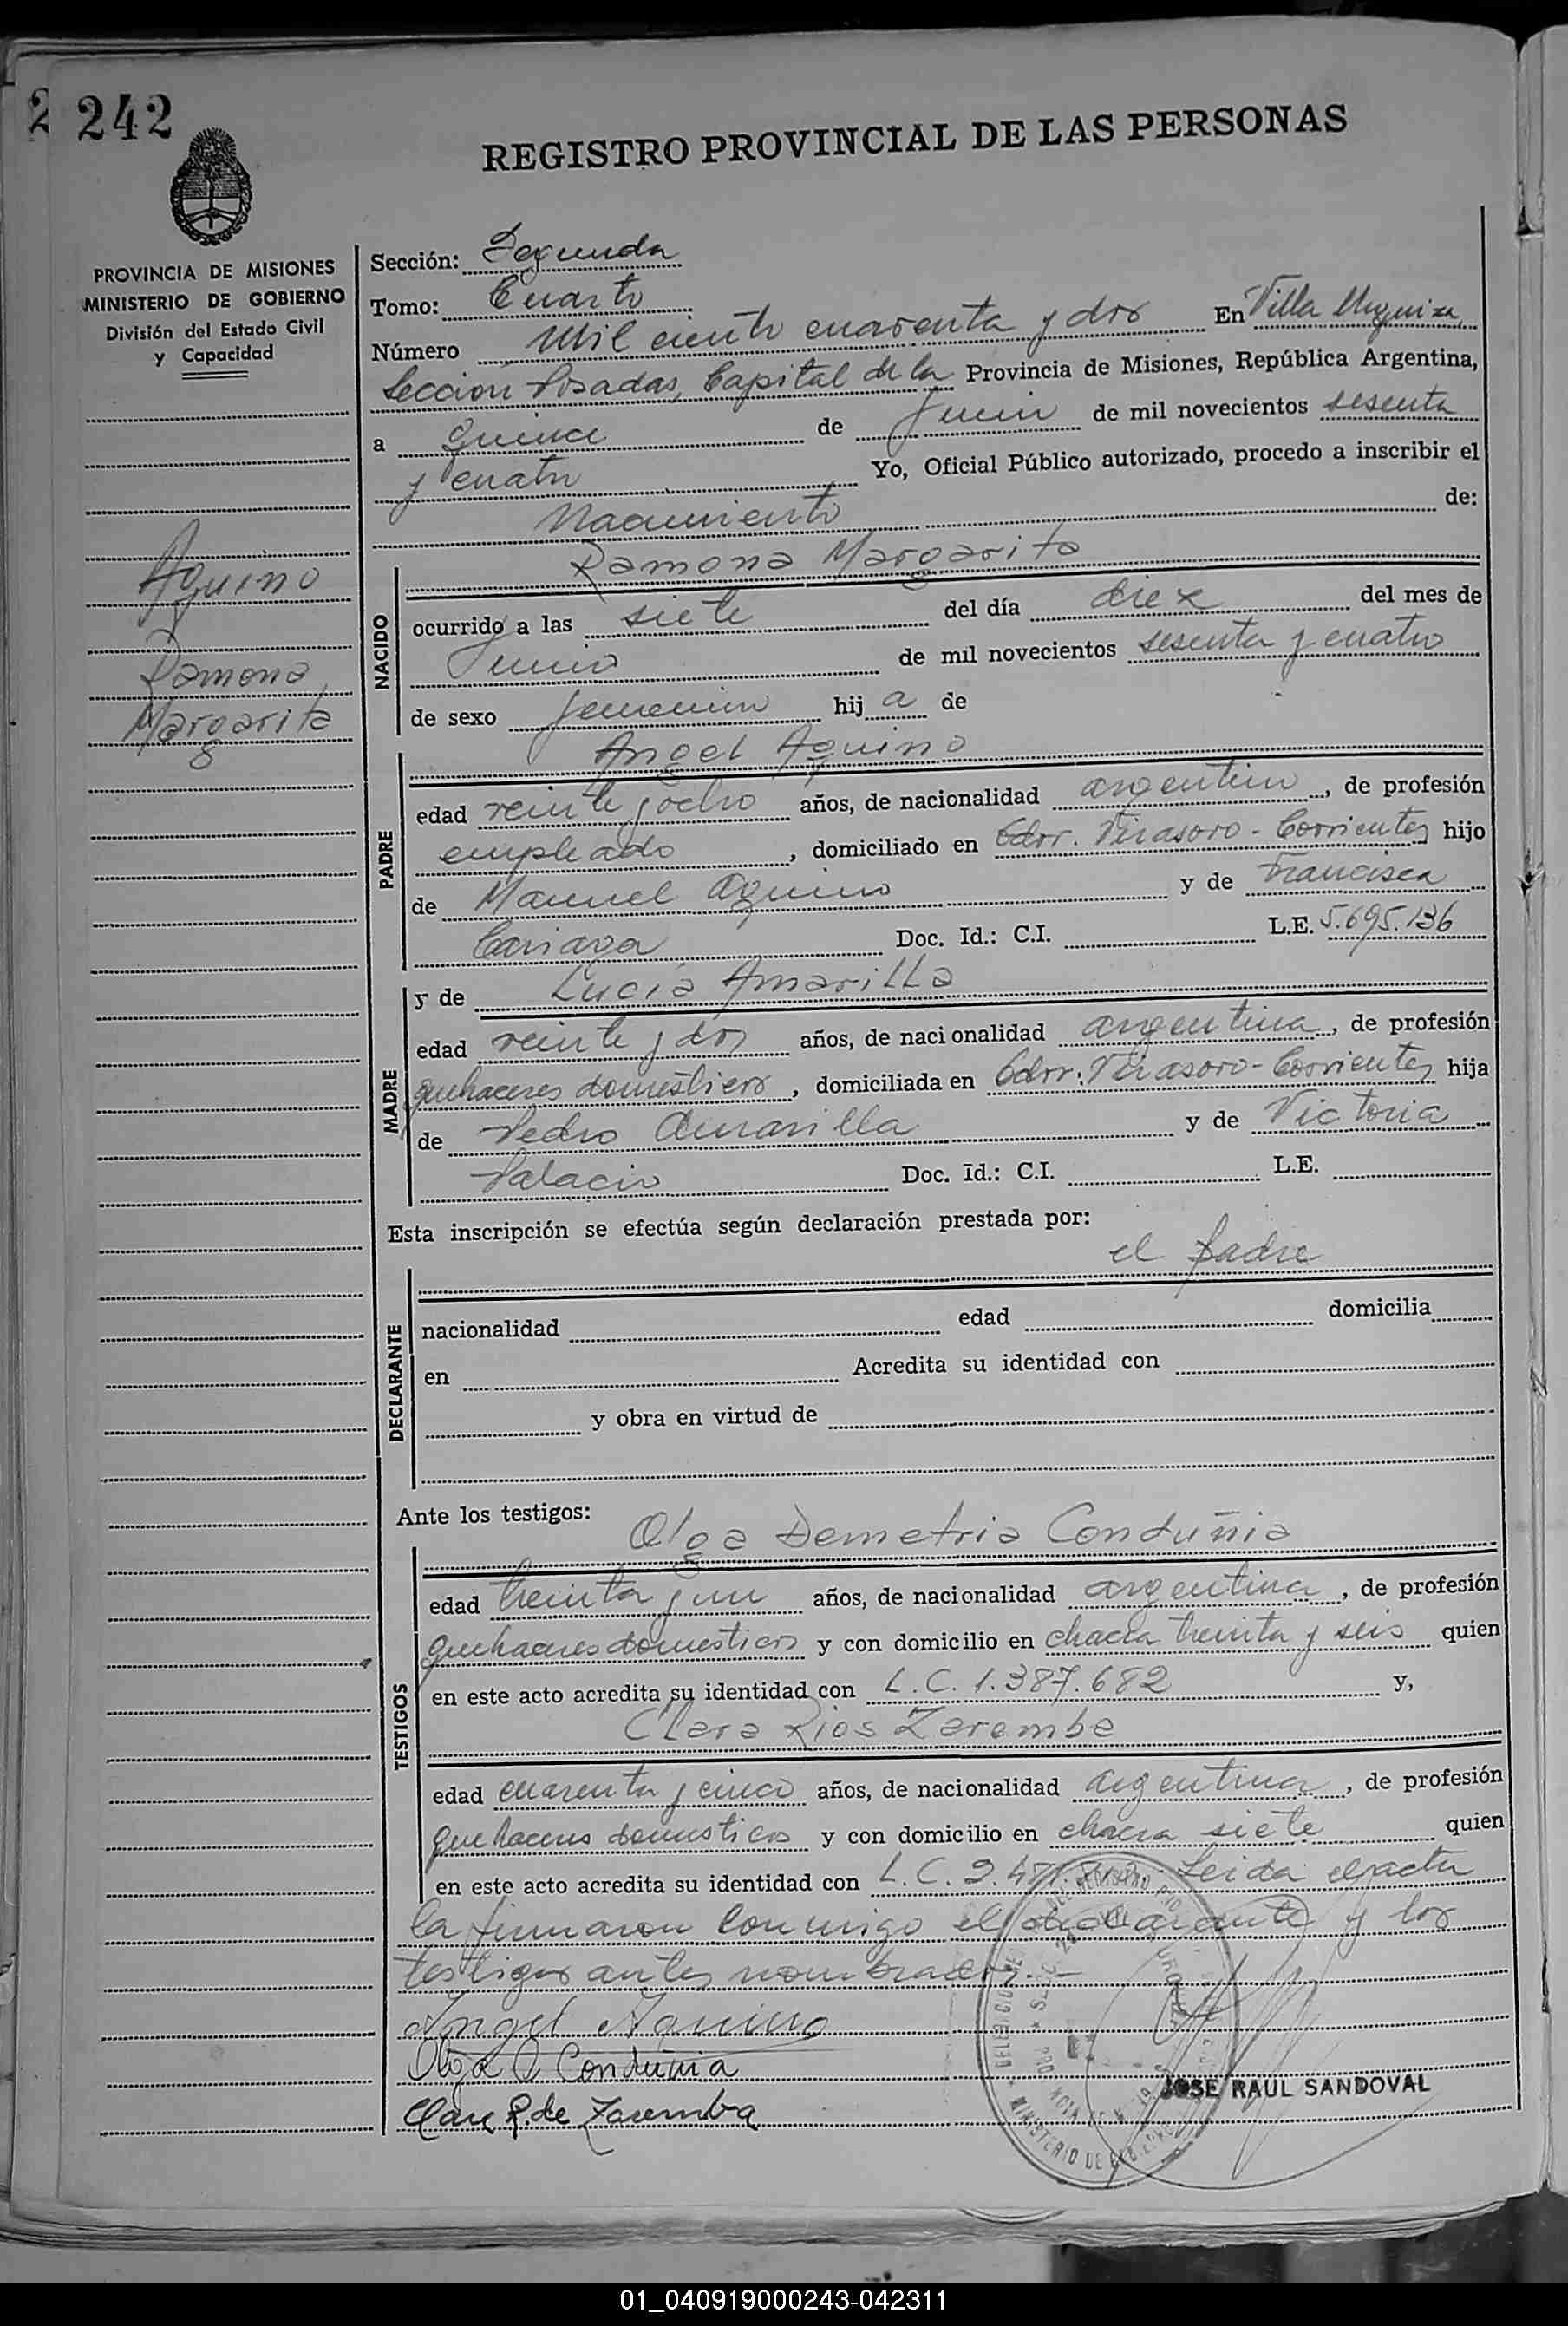 242
REGISTRO PROVINCIAL DE LAS PERSONAS
PROVINCIA DE MISIONES
MINISTERIO DE GOBIERNO
División del Estado Civil
y Capacidad
Aquino
Ramona
Margarita
Sección: Segunda
Tomo: Cuarto
Número Mil ciento cuarenta y dos En Villa Urquiza,
Sección Posadas, Capital de la Provincia de Misiones, República Argentina,
a quince de Junio de mil novecientos sesenta
y cuatro Yo, Oficial Público autorizado, procedo a inscribir el
Nacimiento de:
Ramona Margarita
NACIDO
ocurrido a las siete del día diez del mes de
Junio de mil novecientos sesenta y cuatro
de sexo femenino hij a de
Angel Aquino
PADRE
edad veinte y ocho años, de nacionalidad argentino, de profesión
empleado, domiciliado en Gdor. Virasoro - Corrientes hijo
de Manuel Aquino y de Francisca
Doc. Id.: C.I. L.E. 5.695.136
y de Lucia Amarilla
MADRE
edad veinte y dos años, de nacionalidad argentina, de profesión
quehaceres domésticos, domiciliada en Gdor. Virasoro - Corrientes hija
de Pedro Amarilla y de Victoria
Palacio Doc. Id.: C.I. L.E.
Esta inscripción se efectúa según declaración prestada por:
el padre
DECLARANTE
nacionalidad edad domicilia
en Acredita su identidad con
y obra en virtud de
Ante los testigos:
Olga Demetria Conduñia
TESTIGOS
edad treinta y un años, de nacionalidad argentina, de profesión
quehaceres domesticos y con domicilio en chacra treinta y seis quien
en este acto acredita su identidad con L.C. 1.387.682 y,
Clara Rios Zaremba
edad cuarenta y cinco años, de nacionalidad argentina, de profesión
quehaceres domesticos y con domicilio en chacra siete quien
en este acto acredita su identidad con L.C. Leida el acta
la firmaron conmigo el declarante y los
testigos antes nombrados.-
Angel Aquino
Olga D Conduñia
Clara R. de Zaremba
JOSE RAUL SANDOVAL
01_040919000243-042311